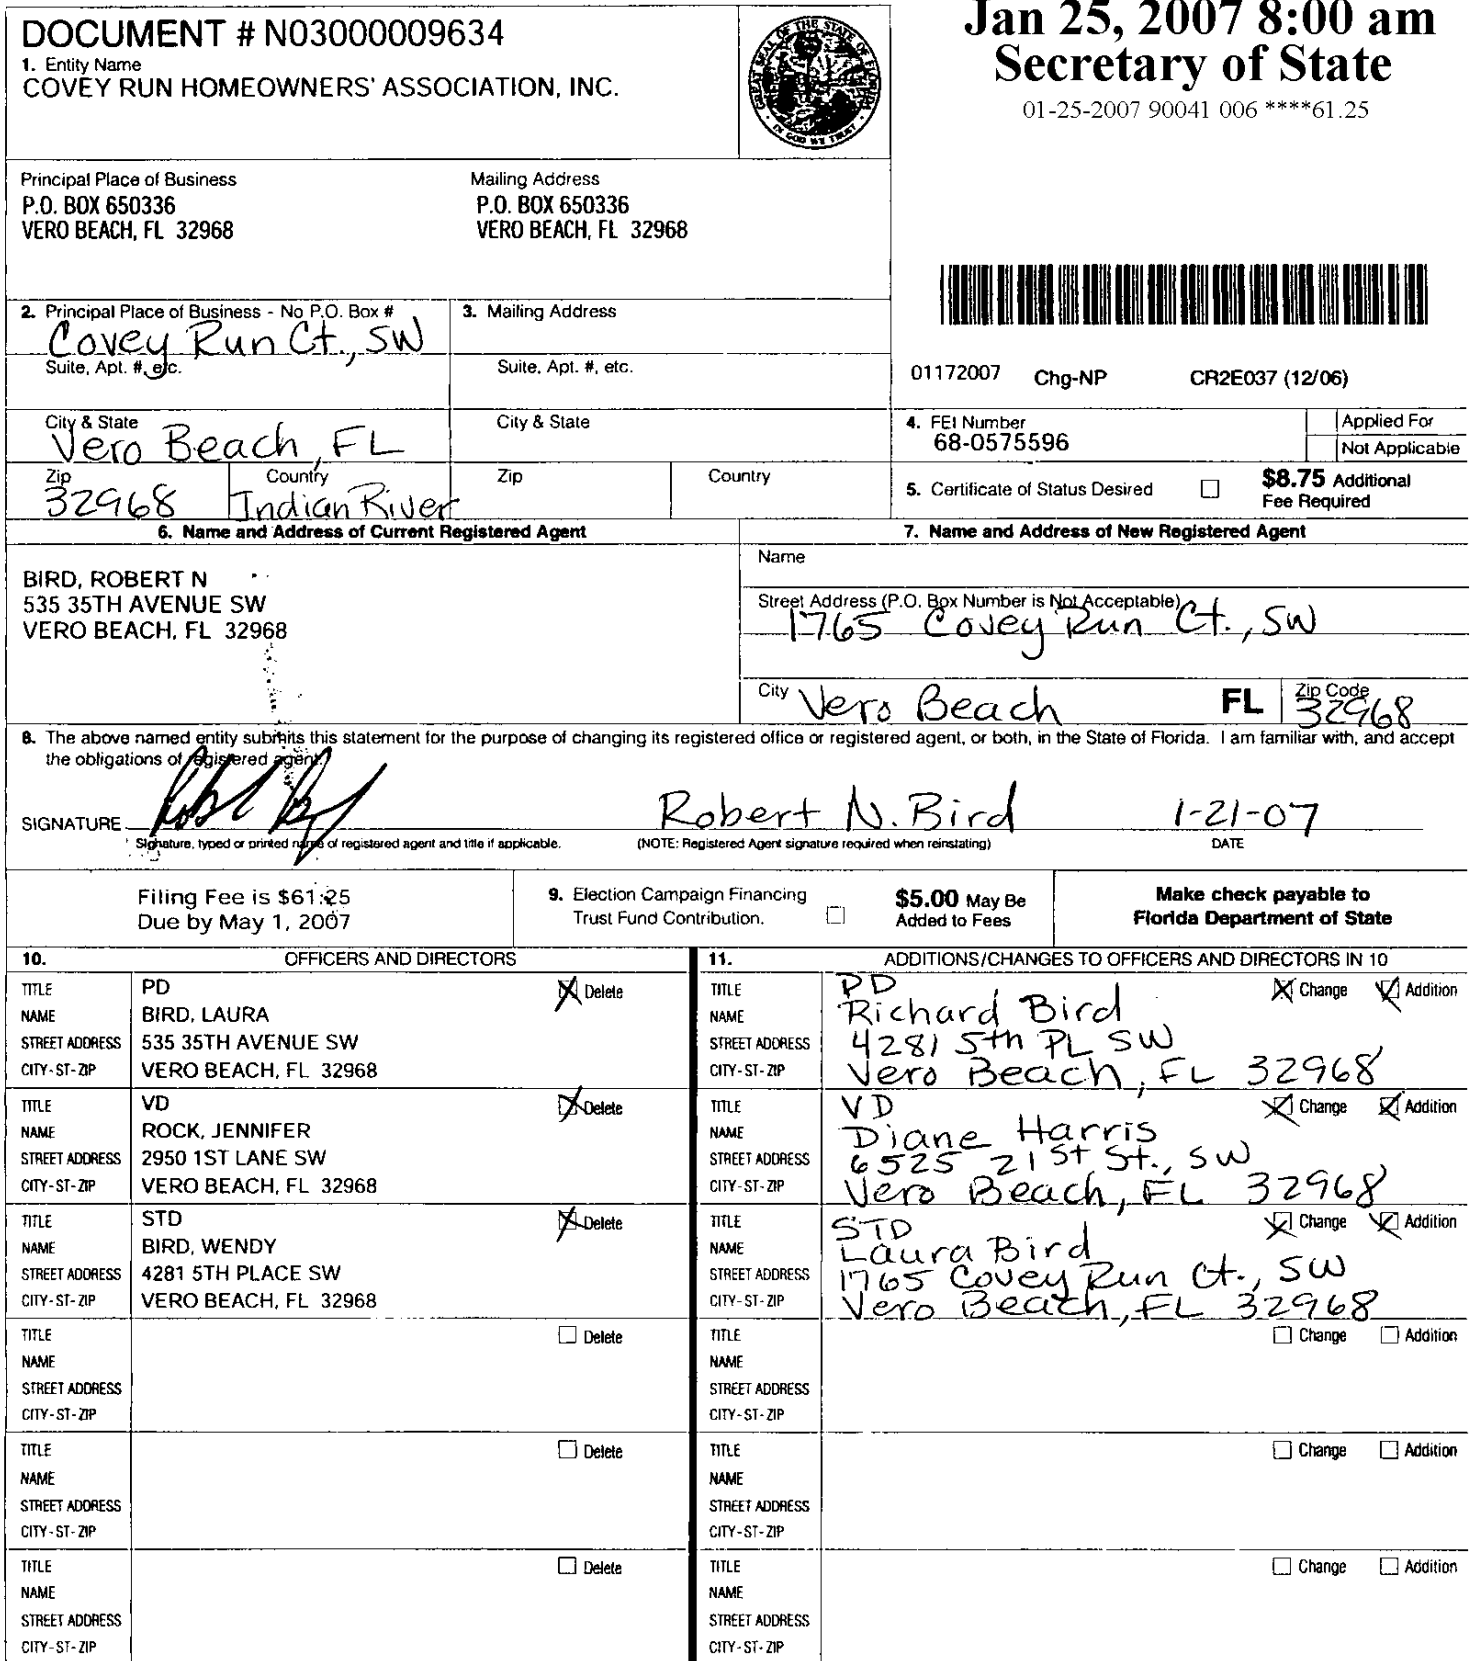 DOCUMENT # N03000009634
1. Entity Name
COVEY RUN HOMEOWNERS' ASSOCIATION, INC.
GREAT SEAL OF THE STATE OF FLORIDA
IN GOD WE TRUST
Jan 25, 2007 8:00 am
Secretary of State
01-25-2007 90041 006 ****61.25
Principal Place of Business
P.O. BOX 650336
VERO BEACH, FL 32968
Mailing Address
P.O. BOX 650336
VERO BEACH, FL 32968
2. Principal Place of Business - No P.O. Box #
Covey Run Ct., SW
Suite, Apt. #, etc.
City & State
Vero Beach, FL
Zip
32968
Country
Indian River
3. Mailing Address
Suite, Apt. #, etc.
City & State
Zip
Country
01172007 Chg-NP CR2E037 (12/06)
4. FEI Number
68-0575596
Applied For
Not Applicable
5. Certificate of Status Desired
$8.75 Additional
Fee Required
6. Name and Address of Current Registered Agent
BIRD, ROBERT N
535 35TH AVENUE SW
VERO BEACH, FL 32968
7. Name and Address of New Registered Agent
Name
Street Address (P.O. Box Number is Not Acceptable)
1765 Covey Run Ct., SW
City Vero Beach FL
Zip Code
32968
8. The above named entity submits this statement for the purpose of changing its registered office or registered agent, or both, in the State of Florida. I am familiar with, and accept
the obligations of registered agent.
SIGNATURE Robert N. Bird 1-21-07
Signature, typed or printed name of registered agent and title if applicable. (NOTE: Registered Agent signature required when reinstating) DATE
Filing Fee is $61.25
Due by May 1, 2007
9. Election Campaign Financing
Trust Fund Contribution.
$5.00 May Be
Added to Fees
Make check payable to
Florida Department of State
10. OFFICERS AND DIRECTORS
TITLE PD Delete
NAME BIRD, LAURA
STREET ADDRESS 535 35TH AVENUE SW
CITY-ST-ZIP VERO BEACH, FL 32968
TITLE VD Delete
NAME ROCK, JENNIFER
STREET ADDRESS 2950 1ST LANE SW
CITY-ST-ZIP VERO BEACH, FL 32968
TITLE STD Delete
NAME BIRD, WENDY
STREET ADDRESS 4281 5TH PLACE SW
CITY-ST-ZIP VERO BEACH, FL 32968
TITLE Delete
NAME
STREET ADDRESS
CITY-ST-ZIP
TITLE Delete
NAME
STREET ADDRESS
CITY-ST-ZIP
TITLE Delete
NAME
STREET ADDRESS
CITY-ST-ZIP
11. ADDITIONS/CHANGES TO OFFICERS AND DIRECTORS IN 10
TITLE PD Change Addition
NAME Richard Bird
STREET ADDRESS 4281 5th PL SW
CITY-ST-ZIP Vero Beach, FL 32968
TITLE VD Change Addition
NAME Diane Harris
STREET ADDRESS 6525 21st St., SW
CITY-ST-ZIP Vero Beach, FL 32968
TITLE STD Change Addition
NAME Laura Bird
STREET ADDRESS 1765 Covey Run Ct., SW
CITY-ST-ZIP Vero Beach, FL 32968
TITLE Change Addition
NAME
STREET ADDRESS
CITY-ST-ZIP
TITLE Change Addition
NAME
STREET ADDRESS
CITY-ST-ZIP
TITLE Change Addition
NAME
STREET ADDRESS
CITY-ST-ZIP